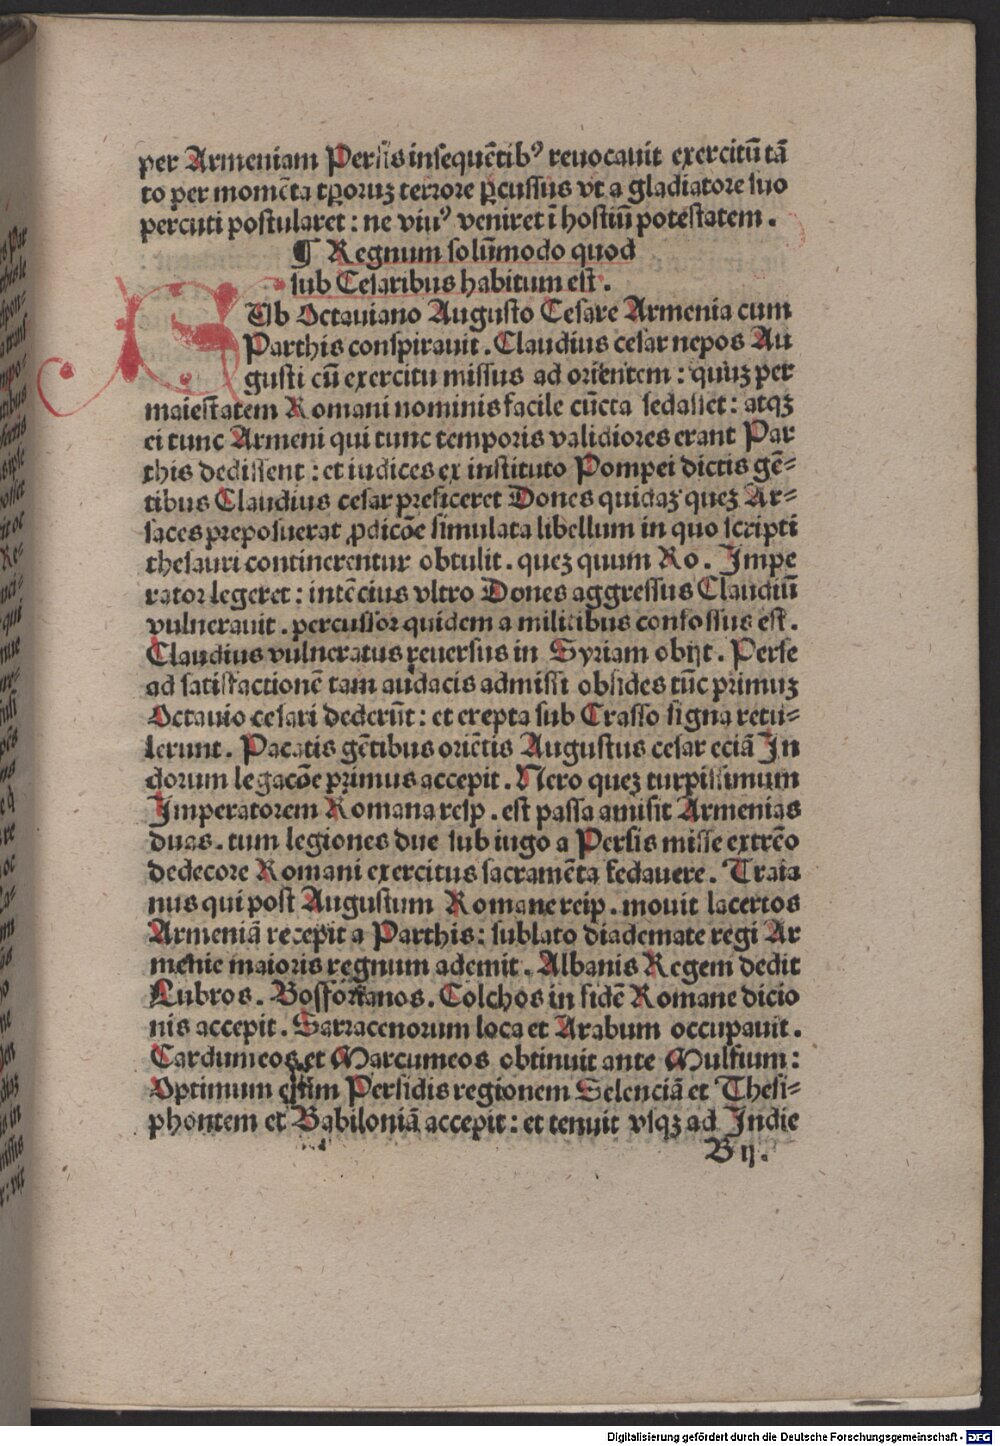 per Armeniam Persis insequētibꝰ reuocauit exercitū tā
to per momēta tꝑoruz terrore ꝑcussus vt a gladiatore suo
percuti postularet : ne viuꝰ veniret ī hostiū potestatem .
¶ Regnum solūmodo quod
sub Cesaribus habitum est .
SUb Octauiano Augusto Cesare Armenia cum
Parthis conspirauit . Claudius cesar nepos Au
gusti cū exercitu missus ad orientem : quūz per
maiestatem Romani nominis facile cūcta sedasset : atqz
ei tunc Armeni qui tunc temporis validiores erant Par
this dedissent : et iudices ex instituto Pompei dictis gē-
tibus Claudius cesar preficeret Dones quidaz quez Ar-
saces preposuerat ꝓdicōe simulata libellum in quo scripti
thesauri continerentur obtulit . quez quum Ro . Impe
rator legeret : intēcius vltro Dones aggressus Claudiū
vulnerauit . percussor quidem a militibus confossus est .
Claudius vulneratus reuersus in Syriam obijt . Perse
ad satisfactionē tam audacis admissi obsides tūc primuz
Octauio cesari dederūt : et erepta sub Crasso signa retu-
lerunt . Pacatis gētibus oriētis Augustus cesar eciā In
dorum legacōe primus accepit . Nero quez turpissimum
Imperatorem Romana resp . est passa amisit Armenias
duas . tum legiones due sub iugo a Persis misse extrēo
dedecore Romani exercitus sacramēta fedauere . Traia
nus qui post Augustum Romane reip . mouit lacertos
Armeniā recepit a Parthis : sublato diademate regi Ar
menie maioris regnum ademit . Albanis Regem dedit
Lubros . Bosforanos . Colchos in fidē Romane dicio
nis accepit . Sarracenorum loca et Arabum occupauit .
Cardumeos et Marcumeos obtinuit ante Mulsium :
Optimum Persidis regionem Selenciā et Thesi-
phontem et Babiloniā accepit : et tenuit vsqz ad Indie
B ij .
Digitalisierung gefördert durch die Deutsche Forschungsgemeinschaft - DFG